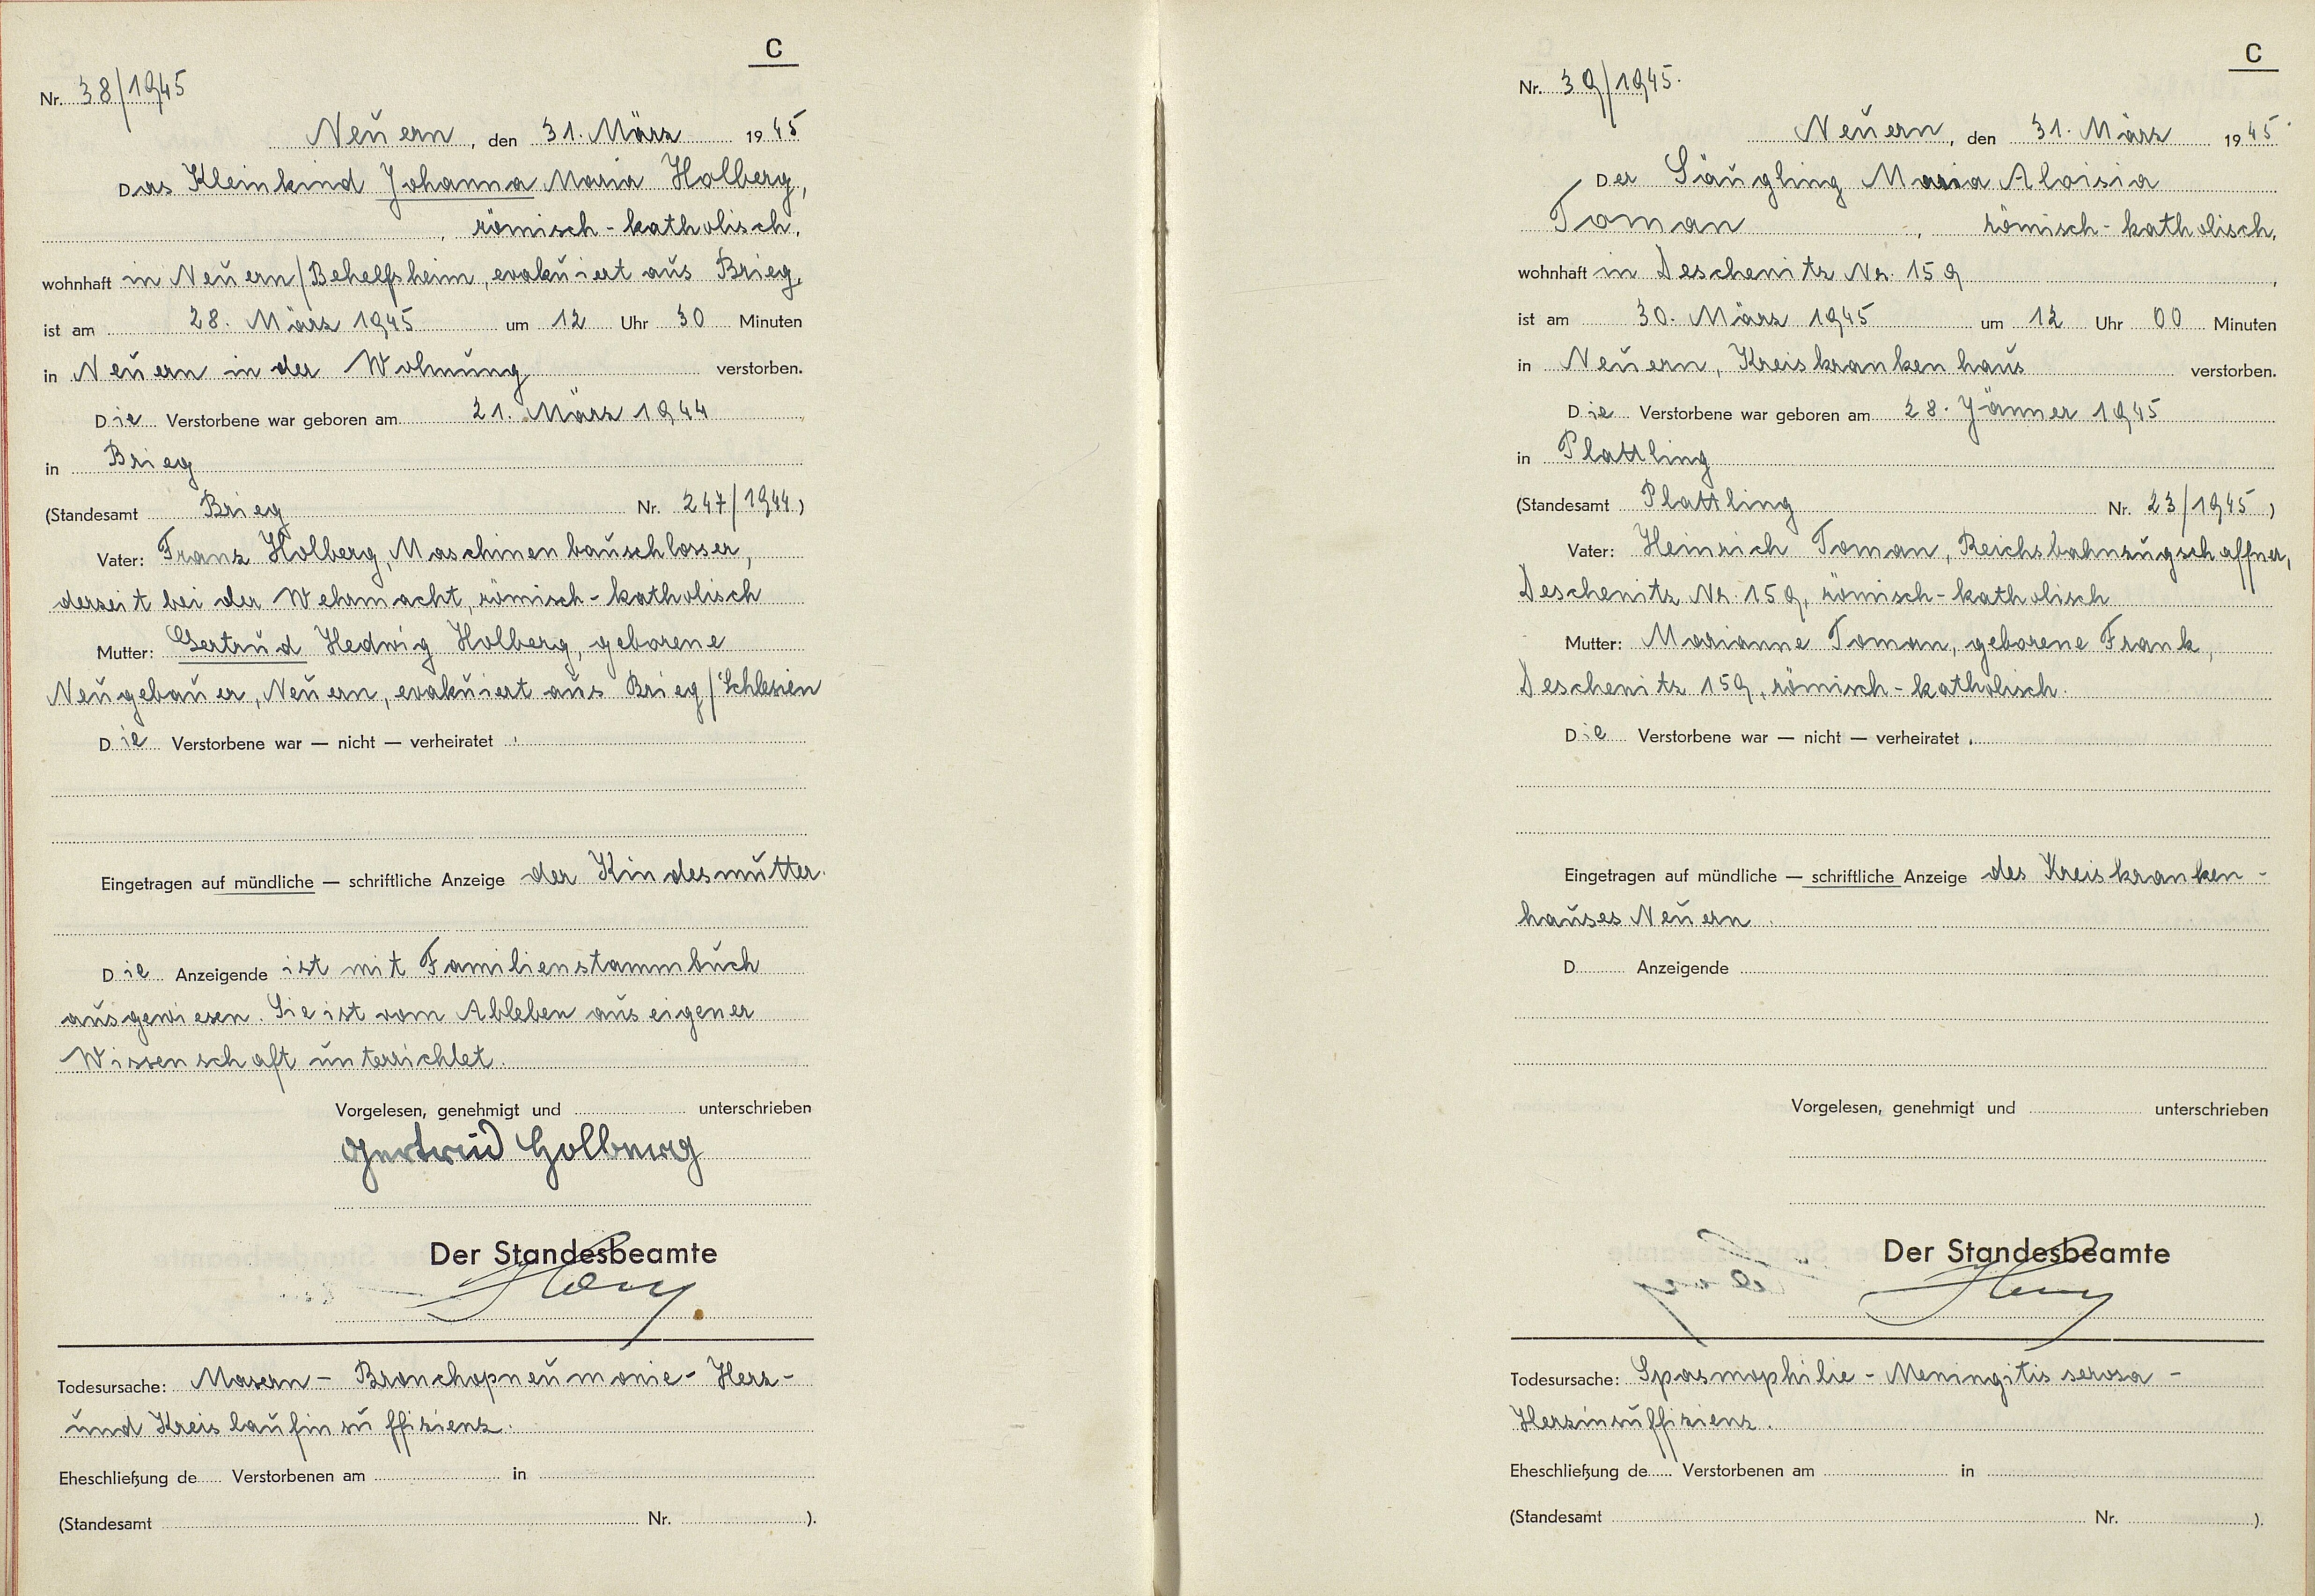 C
Nr. 38/1945
Neuern, den 31. März 1945
Das Kleinkind Johanna Maria Holberg,
, römisch-katholisch,
wohnhaft in Neuern/Behelfsheim, evakuiert aus Brieg,
ist am 28. März 1945 um 12 Uhr 30 Minuten
in Neuern in der Wohnung verstorben.
Die Verstorbene war geboren am 21. März 1944
in Brieg
(Standesamt Brieg Nr. 247/1944)
Vater: Franz Holberg, Maschinenbauschlosser,
derzeit bei der Wehrmacht, römisch-katholisch
Mutter: Gertrud Hedwig Holberg, geborene
Neugebauer, Neuern, evakuiert aus Brieg/Schlesien
Die Verstorbene war — nicht — verheiratet .
Eingetragen auf mündliche — schriftliche Anzeige der Kindesmutter.
Die Anzeigende ist mit Familienstammbuch
ausgewiesen. Sie ist vom Ableben aus eigener
Wissenschaft unterrichtet.
Vorgelesen, genehmigt und unterschrieben
Gertrud Holberg
Der Standesbeamte
Todesursache: Masern - Bronchopneumonie - Herz-
und Kreislaufinsuffizienz.
Eheschließung de Verstorbenen am in
(Standesamt Nr. ).
C
Nr. 39/1945.
Neuern, den 31. März 1945
Der Säugling Maria Aloisia
Toman , römisch-katholisch,
wohnhaft in Deschenitz Nr. 159 ,
ist am 30. März 1945 um 12 Uhr 00 Minuten
in Neuern, Kreiskrankenhaus verstorben.
Die Verstorbene war geboren am 28. Jänner 1945
in Plattling
(Standesamt Plattling Nr. 23/1945)
Vater: Heinrich Toman, Reichsbahnzugschaffner,
Deschenitz Nr. 159, römisch-katholisch
Mutter: Marianne Toman, geborene Frank,
Deschenitz 159, römisch-katholisch.
Die Verstorbene war — nicht — verheiratet .
Eingetragen auf mündliche — schriftliche Anzeige des Kreiskranken-
hauses Neuern.
D Anzeigende
Vorgelesen, genehmigt und unterschrieben
Der Standesbeamte
Todesursache: Spasmophilie - Meningitis serosa -
Herzinsuffizienz.
Eheschließung de Verstorbenen am in
(Standesamt Nr. ).